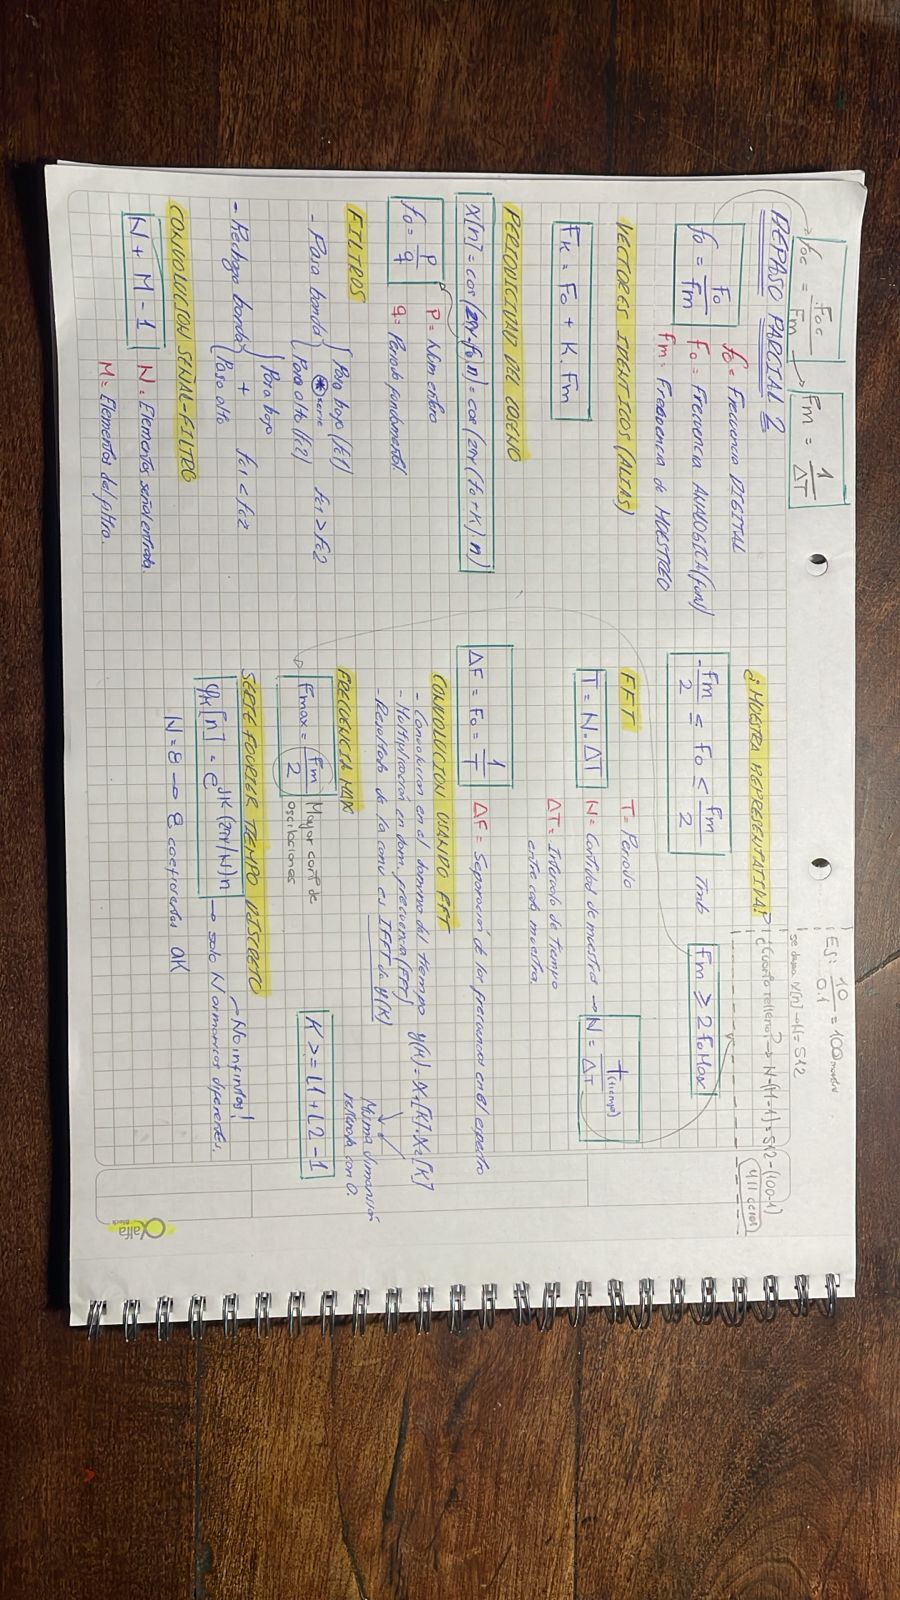 foc = Foc / Fm → Fm = 1 / ΔT
REPASO PARCIAL 2
fo = Fo / Fm
fo = Frecuencia DIGITAL
Fo = Frecuencia ANALOGICA
Fm = Frecuencia de MUESTREO
VECTORES IDENTICOS (ALIAS)
FK = Fo + K. Fm
PERIODICIDAD DEL COSENO
X[n] = cos(2π.fo.n) = cos(2π(fo+K).n)
fo = P / q
P = Núm entero
q = Periodo fundamental.
FILTROS
- Pasa banda
Pasa bajo (fc1)
* serie
Pasa alto (fc2)
fc1 > fc2
- Rechaza banda
Pasa bajo
+
Paso alto
fc1 < fc2
CONVOLUCION SEÑAL-FILTRO
N + M - 1
N = Elementos señal entrada.
M = Elementos del filtro.
EJ: 10 / 0.1 = 100 muestre
se dama X[n] → N = 512
¿Cuanto relleno? → N-(M-1) = 512-(100-1)
411 ceros
¿MUESTRA REPRESENTATIVA?
-Fm / 2 ≤ Fo ≤ Fm / 2
Tmb
Fm ≥ 2 Fo Max
FFT
T = N. ΔT
T = Periodo
N = Cantidad de muestras → N = t(tiempo) / ΔT
ΔT = Intervalo de tiempo
entre cada muestra.
ΔF = Fo = 1 / T
ΔF = Separación de las frecuencias en el espectro
CONVOLUCION USANDO FFT
- Convolucion en el dominio del tiempo y(K) = X1[K].X2[K]
- Multiplicación en dom. frecuencia (FFT)
- Resultado de la conv es IFFT de y(K)
Misma dimensión
rellenada con 0.
FRECUENCIA MAX
Fmax = Fm / 2
Mayor cant de
oscilaciones
K >= L1 + L2 - 1
SERIE FOURIER TIEMPO DISCRETO
φK[n] = e^jK(2π/N)n
No infinitos!
→ solo N armonicos diferentes.
N = 8 → 8 coeficientes aK
alfa